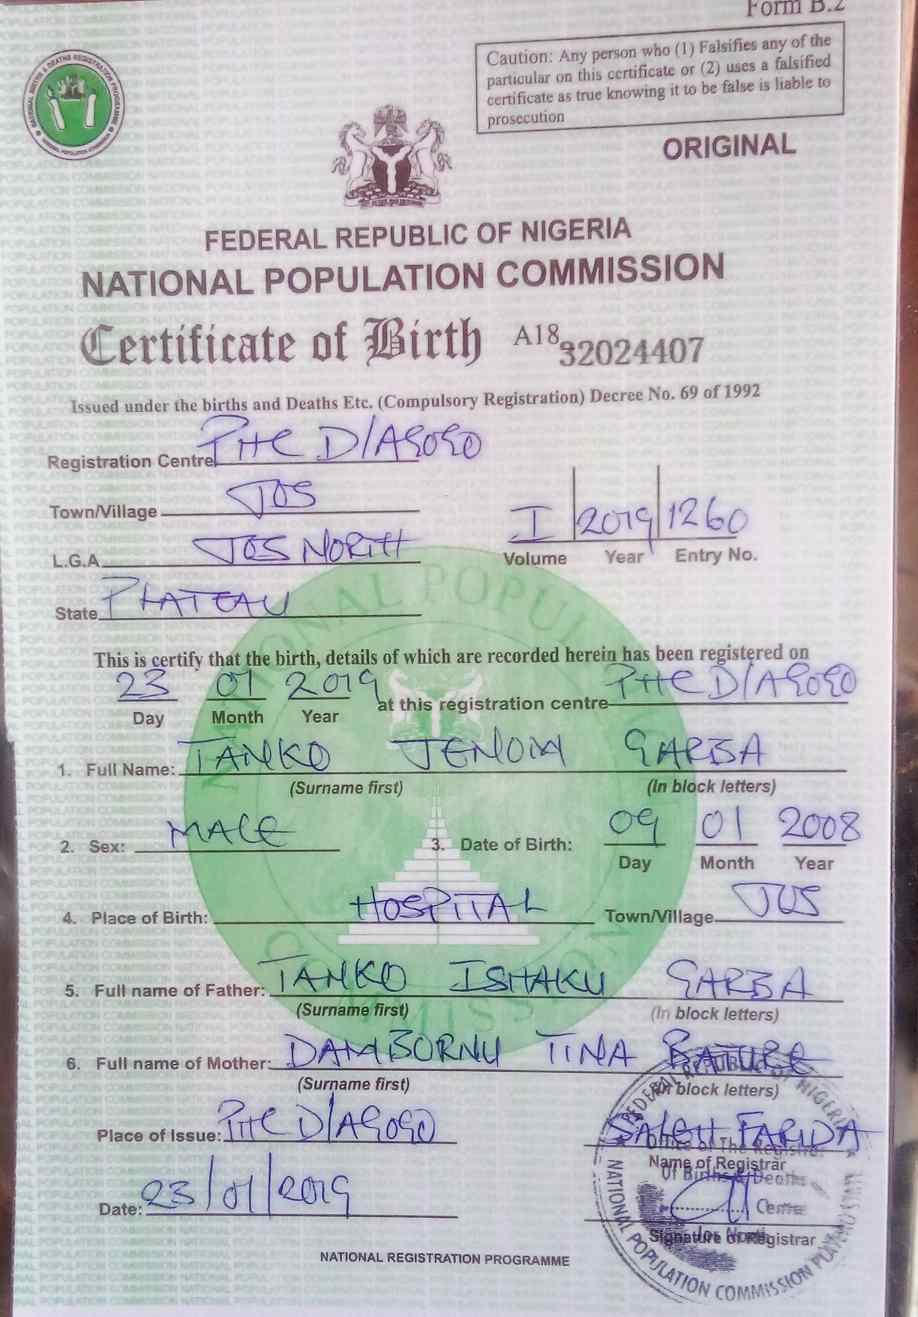 Form B.2
Caution: Any person who (1) Falsifies any of the
particular on this certificate or (2) uses a falsified
certificate as true knowing it to be false is liable to
prosecution
ORIGINAL
FEDERAL REPUBLIC OF NIGERIA
NATIONAL POPULATION COMMISSION
Certificate of Birth A18 32024407
Issued under the births and Deaths Etc. (Compulsory Registration) Decree No. 69 of 1992
Registration Centre PHC D/AGOGO
Town/Village JOS
I 2019 1260
L.G.A JOS NORTH
Volume Year Entry No.
State PLATEAU
This is certify that the birth, details of which are recorded herein has been registered on
23 01 2019 at this registration centre PHC D/AGOGO
Day Month Year
1. Full Name: TANKO JENOM GARBA
(Surname first) (In block letters)
2. Sex: MALE 3. Date of Birth: 09 01 2008
Day Month Year
4. Place of Birth: HOSPITAL Town/Village JOS
5. Full name of Father: TANKO ISHAKU GARBA
(Surname first) (In block letters)
6. Full name of Mother: DAMBORNU TINA BATURE
(Surname first) (In block letters)
Place of Issue: PHC D/AGOGO SALEH FARIDA
Name of Registrar
Date: 23/01/2019
Signature of Registrar
NATIONAL REGISTRATION PROGRAMME
FEDERAL REPUBLIC OF NIGERIA
Office of The Registrar
Of Births & Deaths
Centre
Jos North
NATIONAL POPULATION COMMISSION PLATEAU STATE